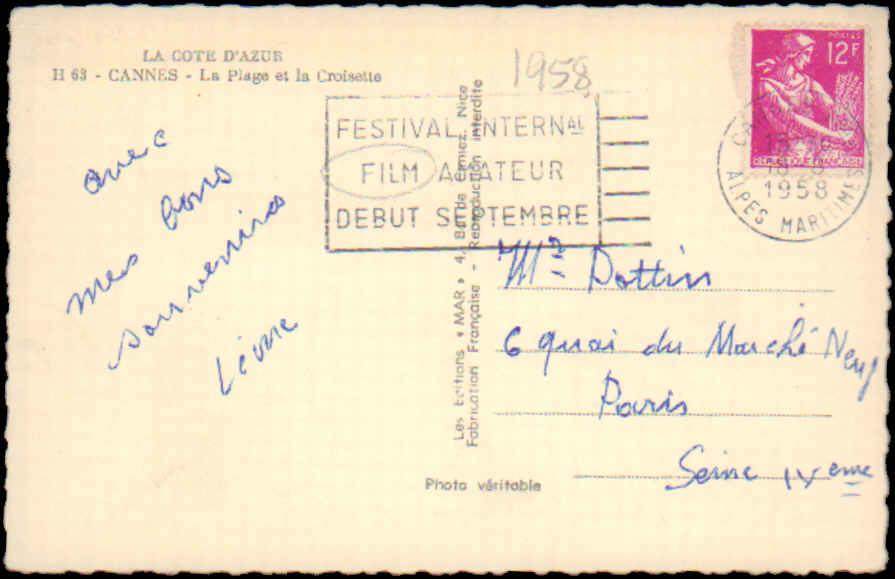 LA COTE D'AZUR
H 63 - CANNES - La Plage et la Croisette
1958
FESTIVAL INTERNAL
FILM AMATEUR
DEBUT SEPTEMBRE
POSTES
12F
REPUBLIQUE FRANÇAISE
1958
ALPES MARITIMES
avec
mes bons
souvenirs
Les Editions « MAR » 4, Bd de Cimiez, Nice
Fabrication Française - Reproduction interdite
Mr Dottin
6 quai du Marché Neuf
Paris
Seine IVeme
Photo véritable